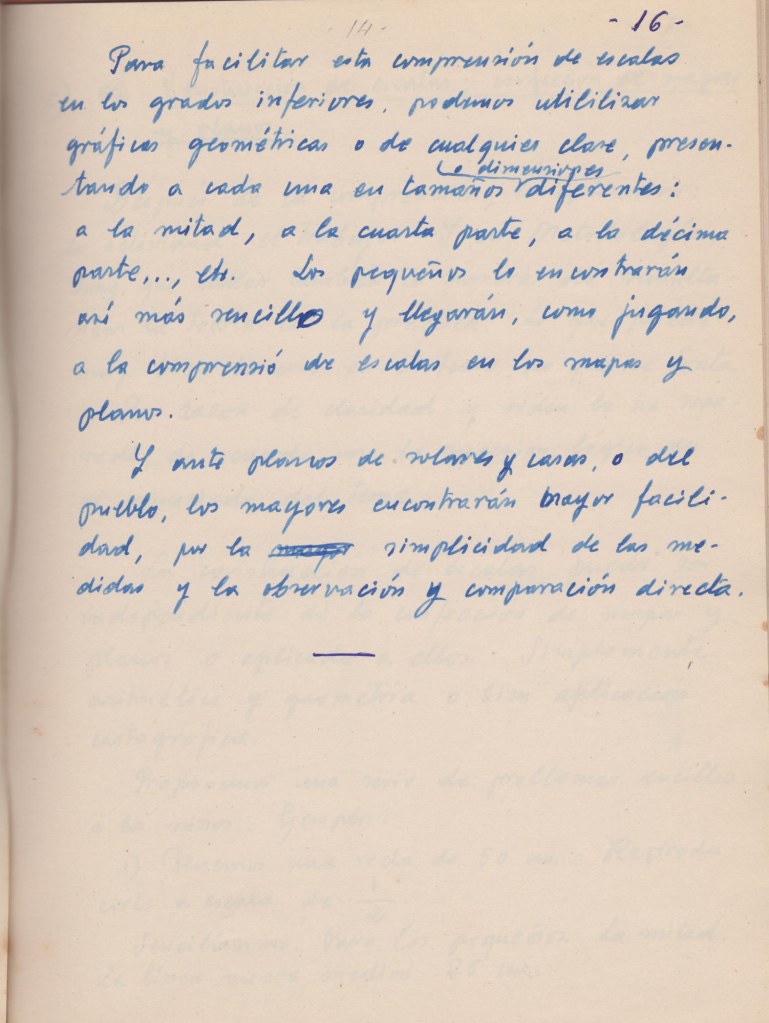 - 14 -
- 16 -
Para facilitar esta comprensión de escalas
en los grados inferiores, podemos utililizar
gráficas geométricas o de cualquier clase, presen-
o dimensiones
tando a cada una en tamaños diferentes:
a la mitad, a la cuarta parte, a la décima
parte,.., etc. Los pequeños lo encontrarán
así más sencillo y llegarán, como jugando,
a la comprensió de escalas en los mapas y
planos.
Y ante planos de solares y casas, o del
pueblo, los mayores encontrarán mayor facili-
dad, por la simplicidad de las me-
didas y la observación y comparación directa.